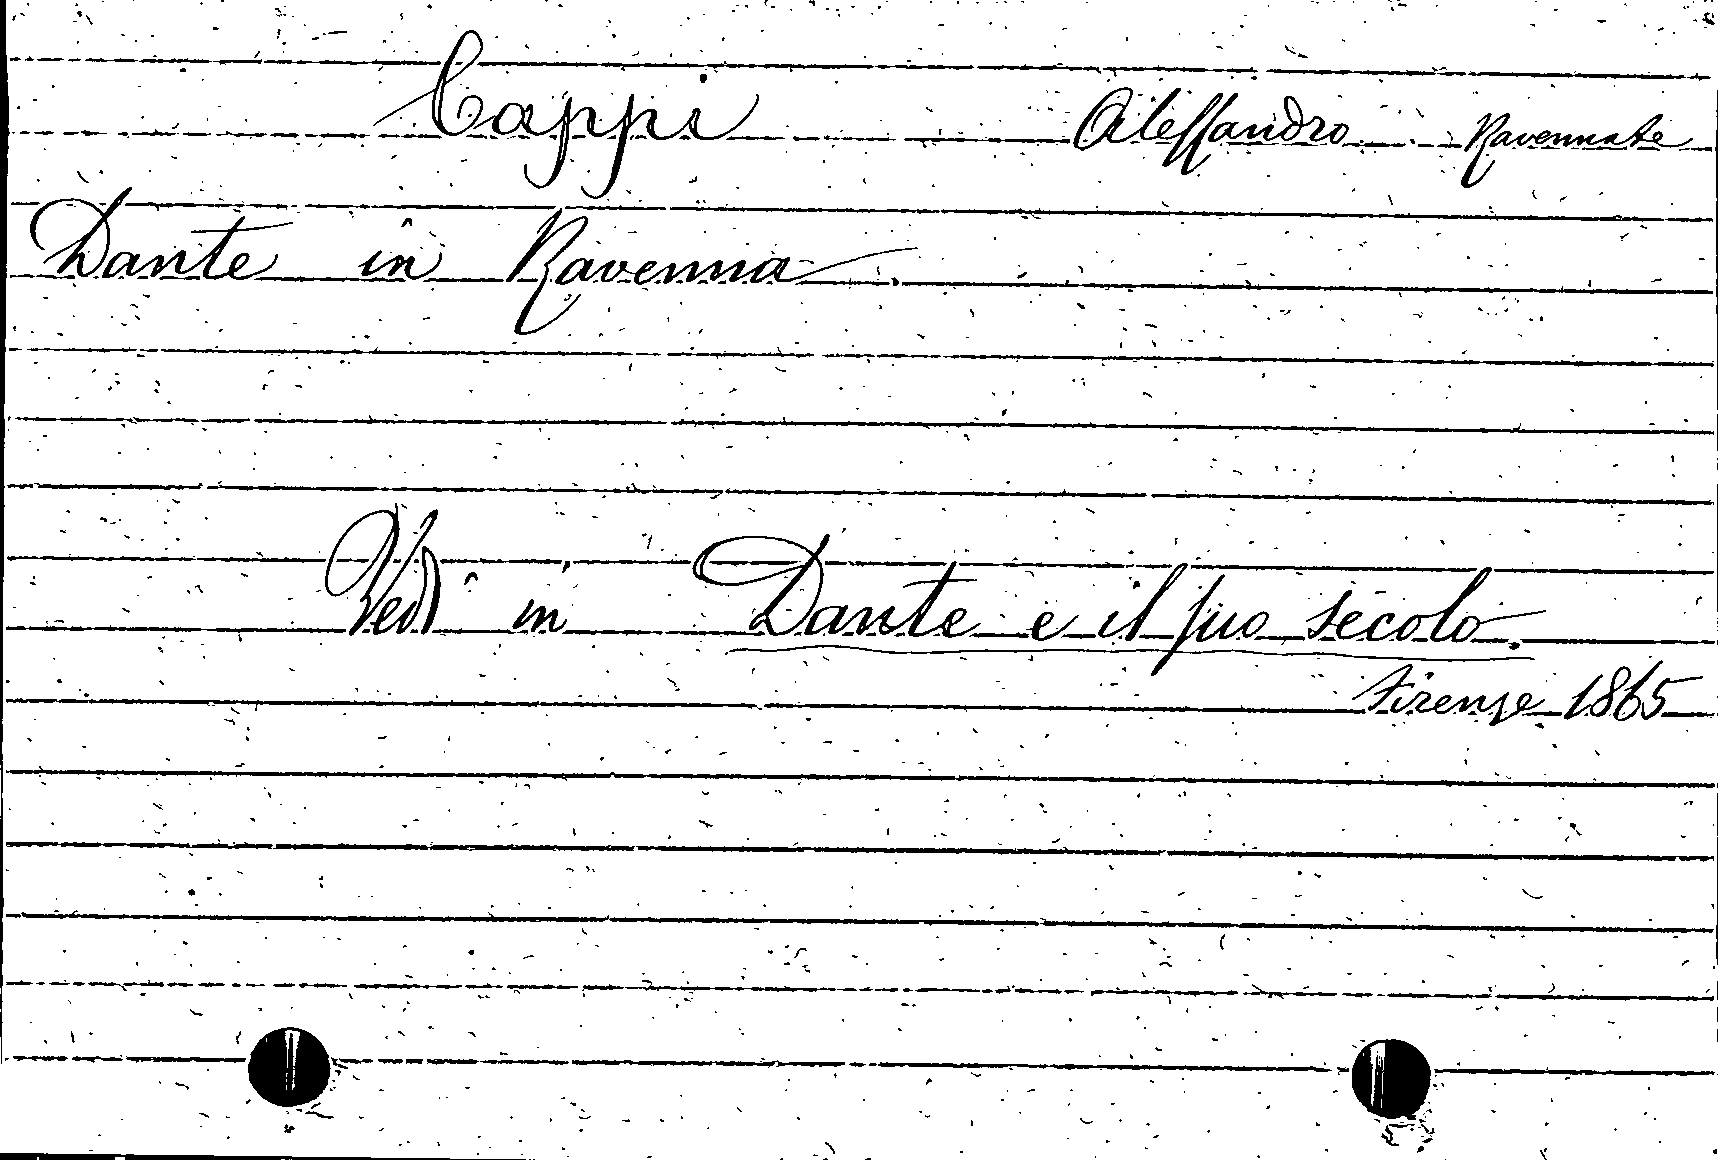 Cappi Alessandro Ravennate
Dante in Ravenna
Vedi in Dante e il suo secolo.
Firenze 1865